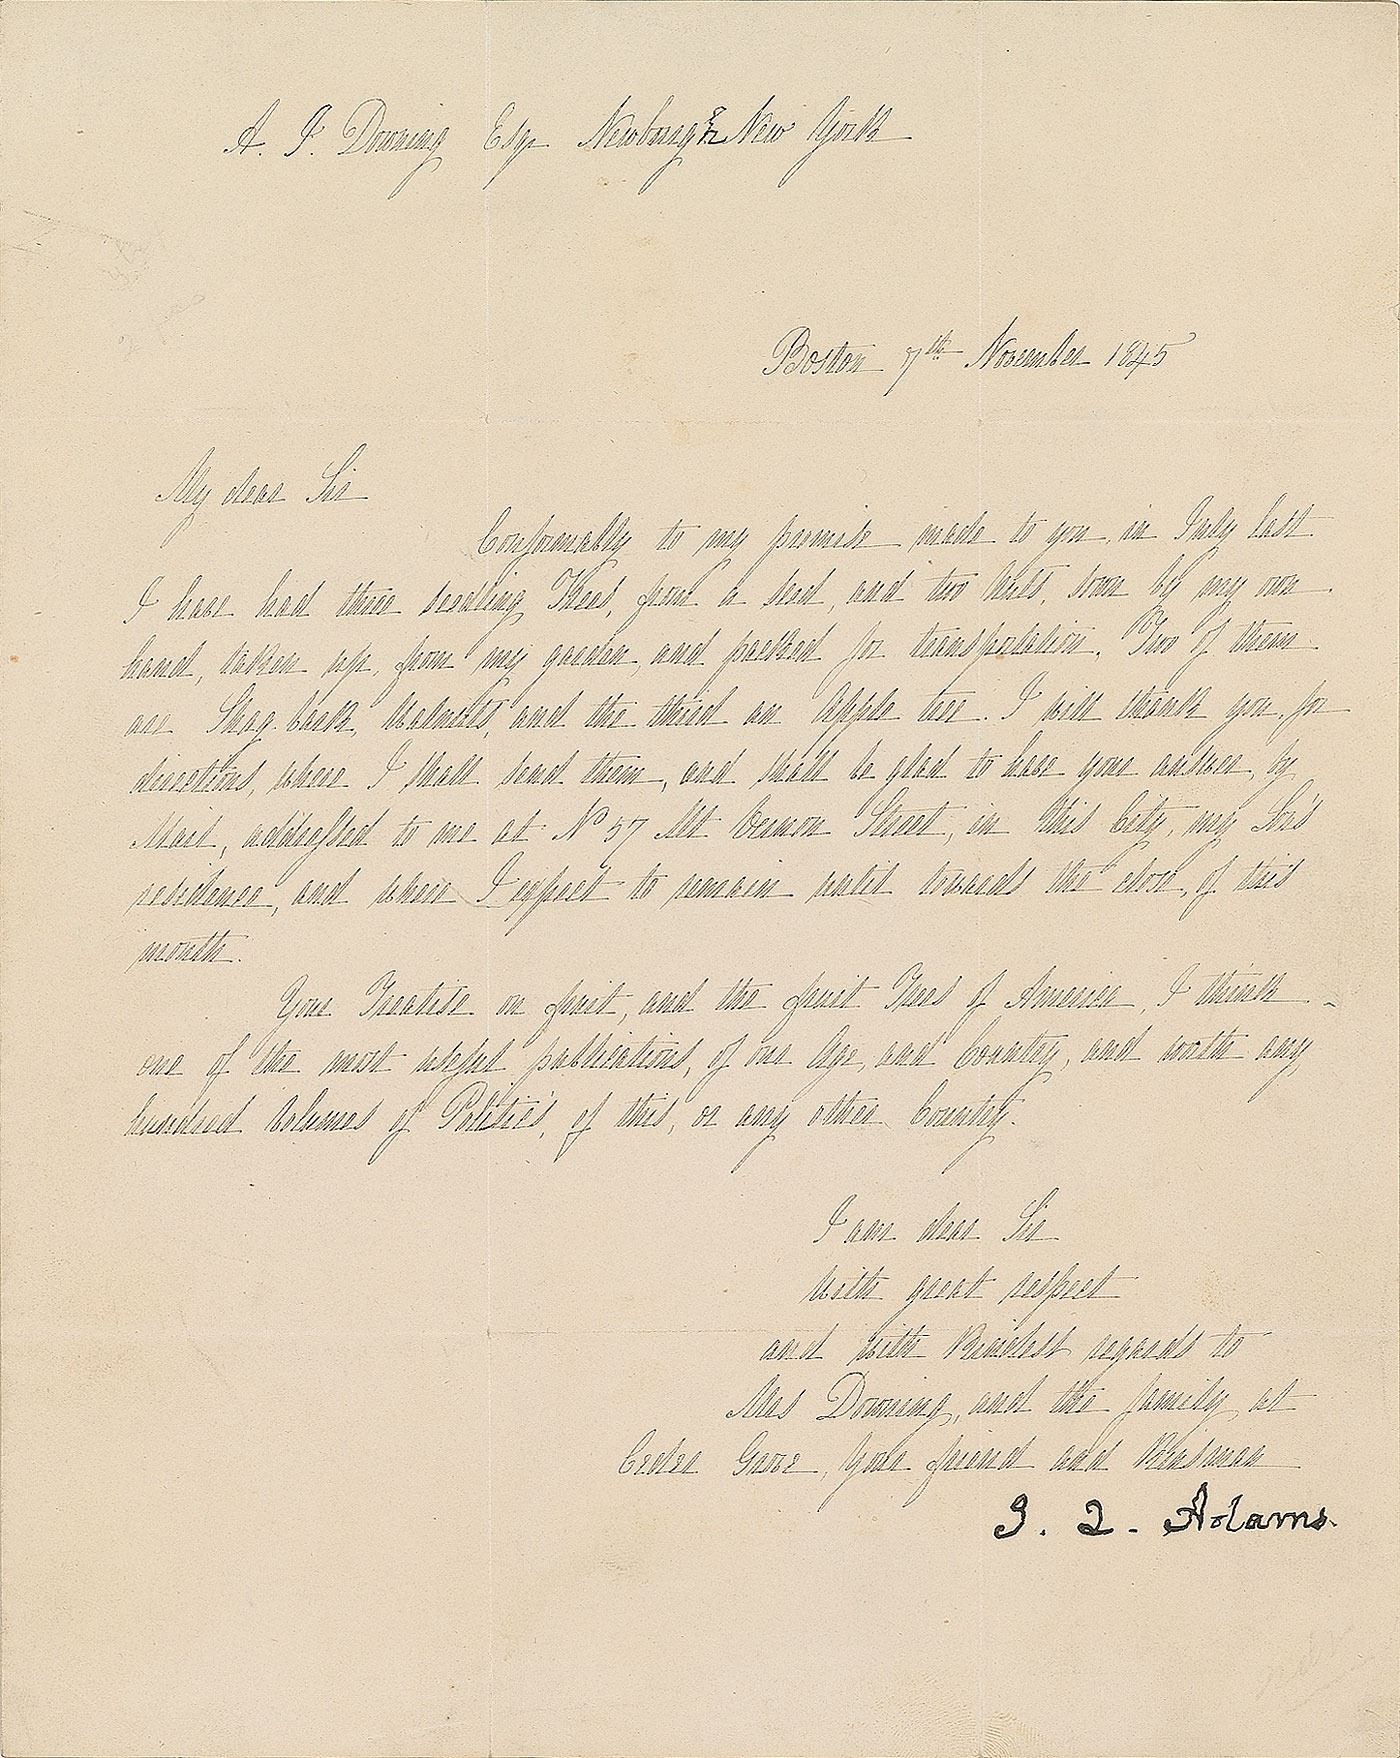 A. J. Downing Esqr Newburgh New York
Boston 7th November 1845
My dear Sir
Conformably to my promise made to you, in July last
I have had three seedling Trees, from a seed, and two Nuts, sown by my own
hand, taken up, from my garden, and packed for transportation. Two of them
are Shag-bark, Walnuts, and the third an Apple tree. I will thank you, for
directions, where I shall send them, and shall be glad to have your answer, by
Mail, addressed to me at No 57 Mt Vernon Street, in this City, my Son's
residence, and where I expect to remain until towards the close, of this
month.
Your Treatise on fruit, and the fruit Trees of America, I think
one of the most useful publications, of our Age, and Country, and worth any
hundred Volumes of Politics, of this, or any other Country.
I am dear Sir
with great respect
and with Kindest regards to
Mrs Downing, and the family, at
Cedar Grove, Your friend and Kinsman
J. Q. Adams.